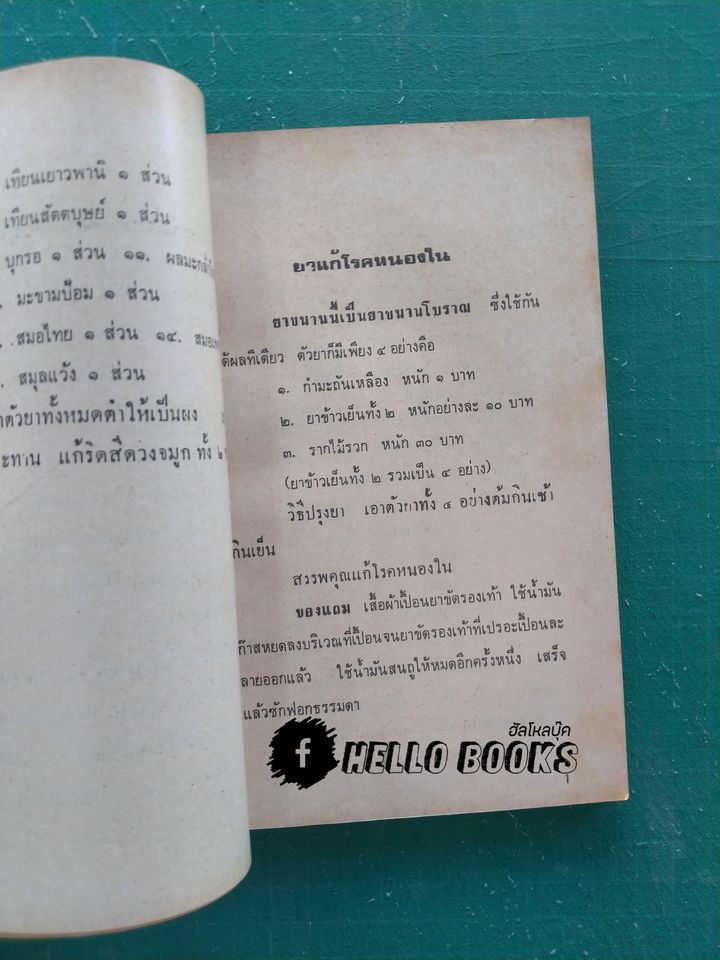 เทียนเยาวพานิ ๑ ส่วน
เทียนสัตตบุษย์ ๑ ส่วน
บุกรอ ๑ ส่วน ๑๑. ผลมะกล่ำ
มะขามป้อม ๑ ส่วน
สมอไทย ๑ ส่วน ๑๔. สมอเทศ
สมุลแว้ง ๑ ส่วน
ตัวยาทั้งหมดตำให้เป็นผง
ะทาน แก้ริดสีดวงจมูก ทั้ง ๒
ยาแก้โรคหนองใน
ยาขนานนี้เป็นยาขนานโบราณ ซึ่งใช้กัน
ด้ผลทีเดียว ตัวยาก็มีเพียง ๔ อย่างคือ
๑. กำมะถันเหลือง หนัก ๑ บาท
๒. ยาข้าวเย็นทั้ง ๒ หนักอย่างละ ๑๐ บาท
๓. รากไม้รวก หนัก ๓๐ บาท
(ยาข้าวเย็นทั้ง ๒ รวมเป็น ๔ อย่าง)
วิธีปรุงยา เอาตัวยาทั้ง ๔ อย่างต้มกินเช้า
กินเย็น
สรรพคุณแก้โรคหนองใน
ของแถม เสื้อผ้าเปื้อนยาขัดรองเท้า ใช้น้ำมัน
ก๊าสหยดลงบริเวณที่เปื้อนจนยาขัดรองเท้าที่เปรอะเปื้อนละ
ลายออกแล้ว ใช้น้ำมันสนถูให้หมดอีกครั้งหนึ่ง เสร็จ
แล้วซักฟอกธรรมดา
ฮัลโหลบุ๊ค
f HELLO BOOKS